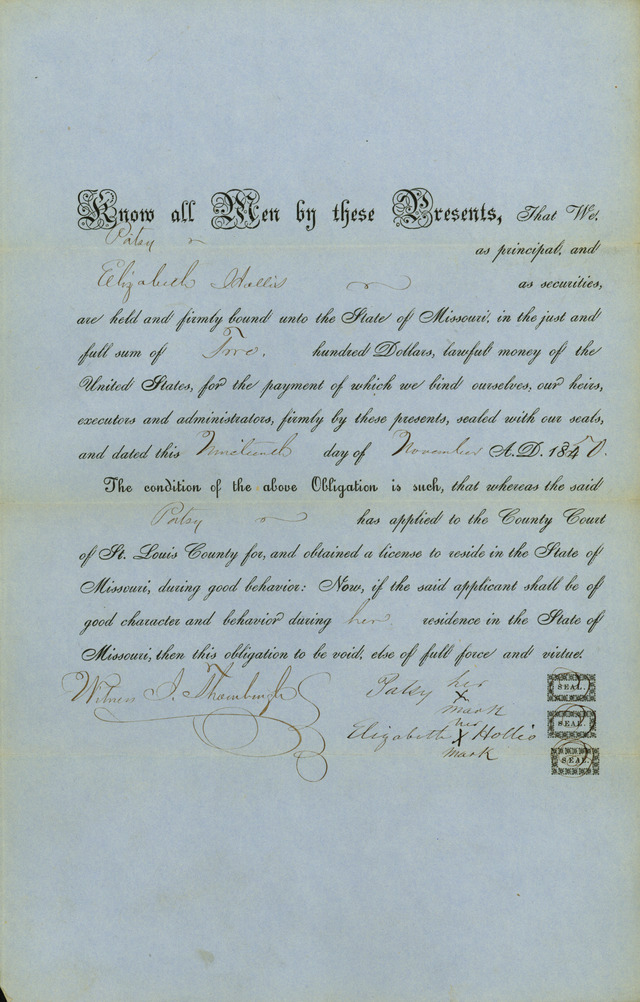 Know all Men by these Presents, That We,
Patsy
as principal, and
Elizabeth Hollis as securities,
are held and firmly bound unto the State of Missouri, in the just and
full sum of Two. hundred Dollars, lawful money of the
United States, for the payment of which we bind ourselves, our heirs,
executors and administrators, firmly by these presents, sealed with our seals,
and dated this Nineteenth day of November A.D. 1850.
The condition of the above Obligation is such, that whereas the said
Patsy has applied to the County Court
of St. Louis County for, and obtained a license to reside in the State of
Missouri, during good behavior: Now, if the said applicant shall be of
good character and behavior during her residence in the State of
Missouri, then this obligation to be void, else of full force and virtue.
Witness
Patsy her X mark SEAL.
Elizabeth her X mark Hollis SEAL.
SEAL.